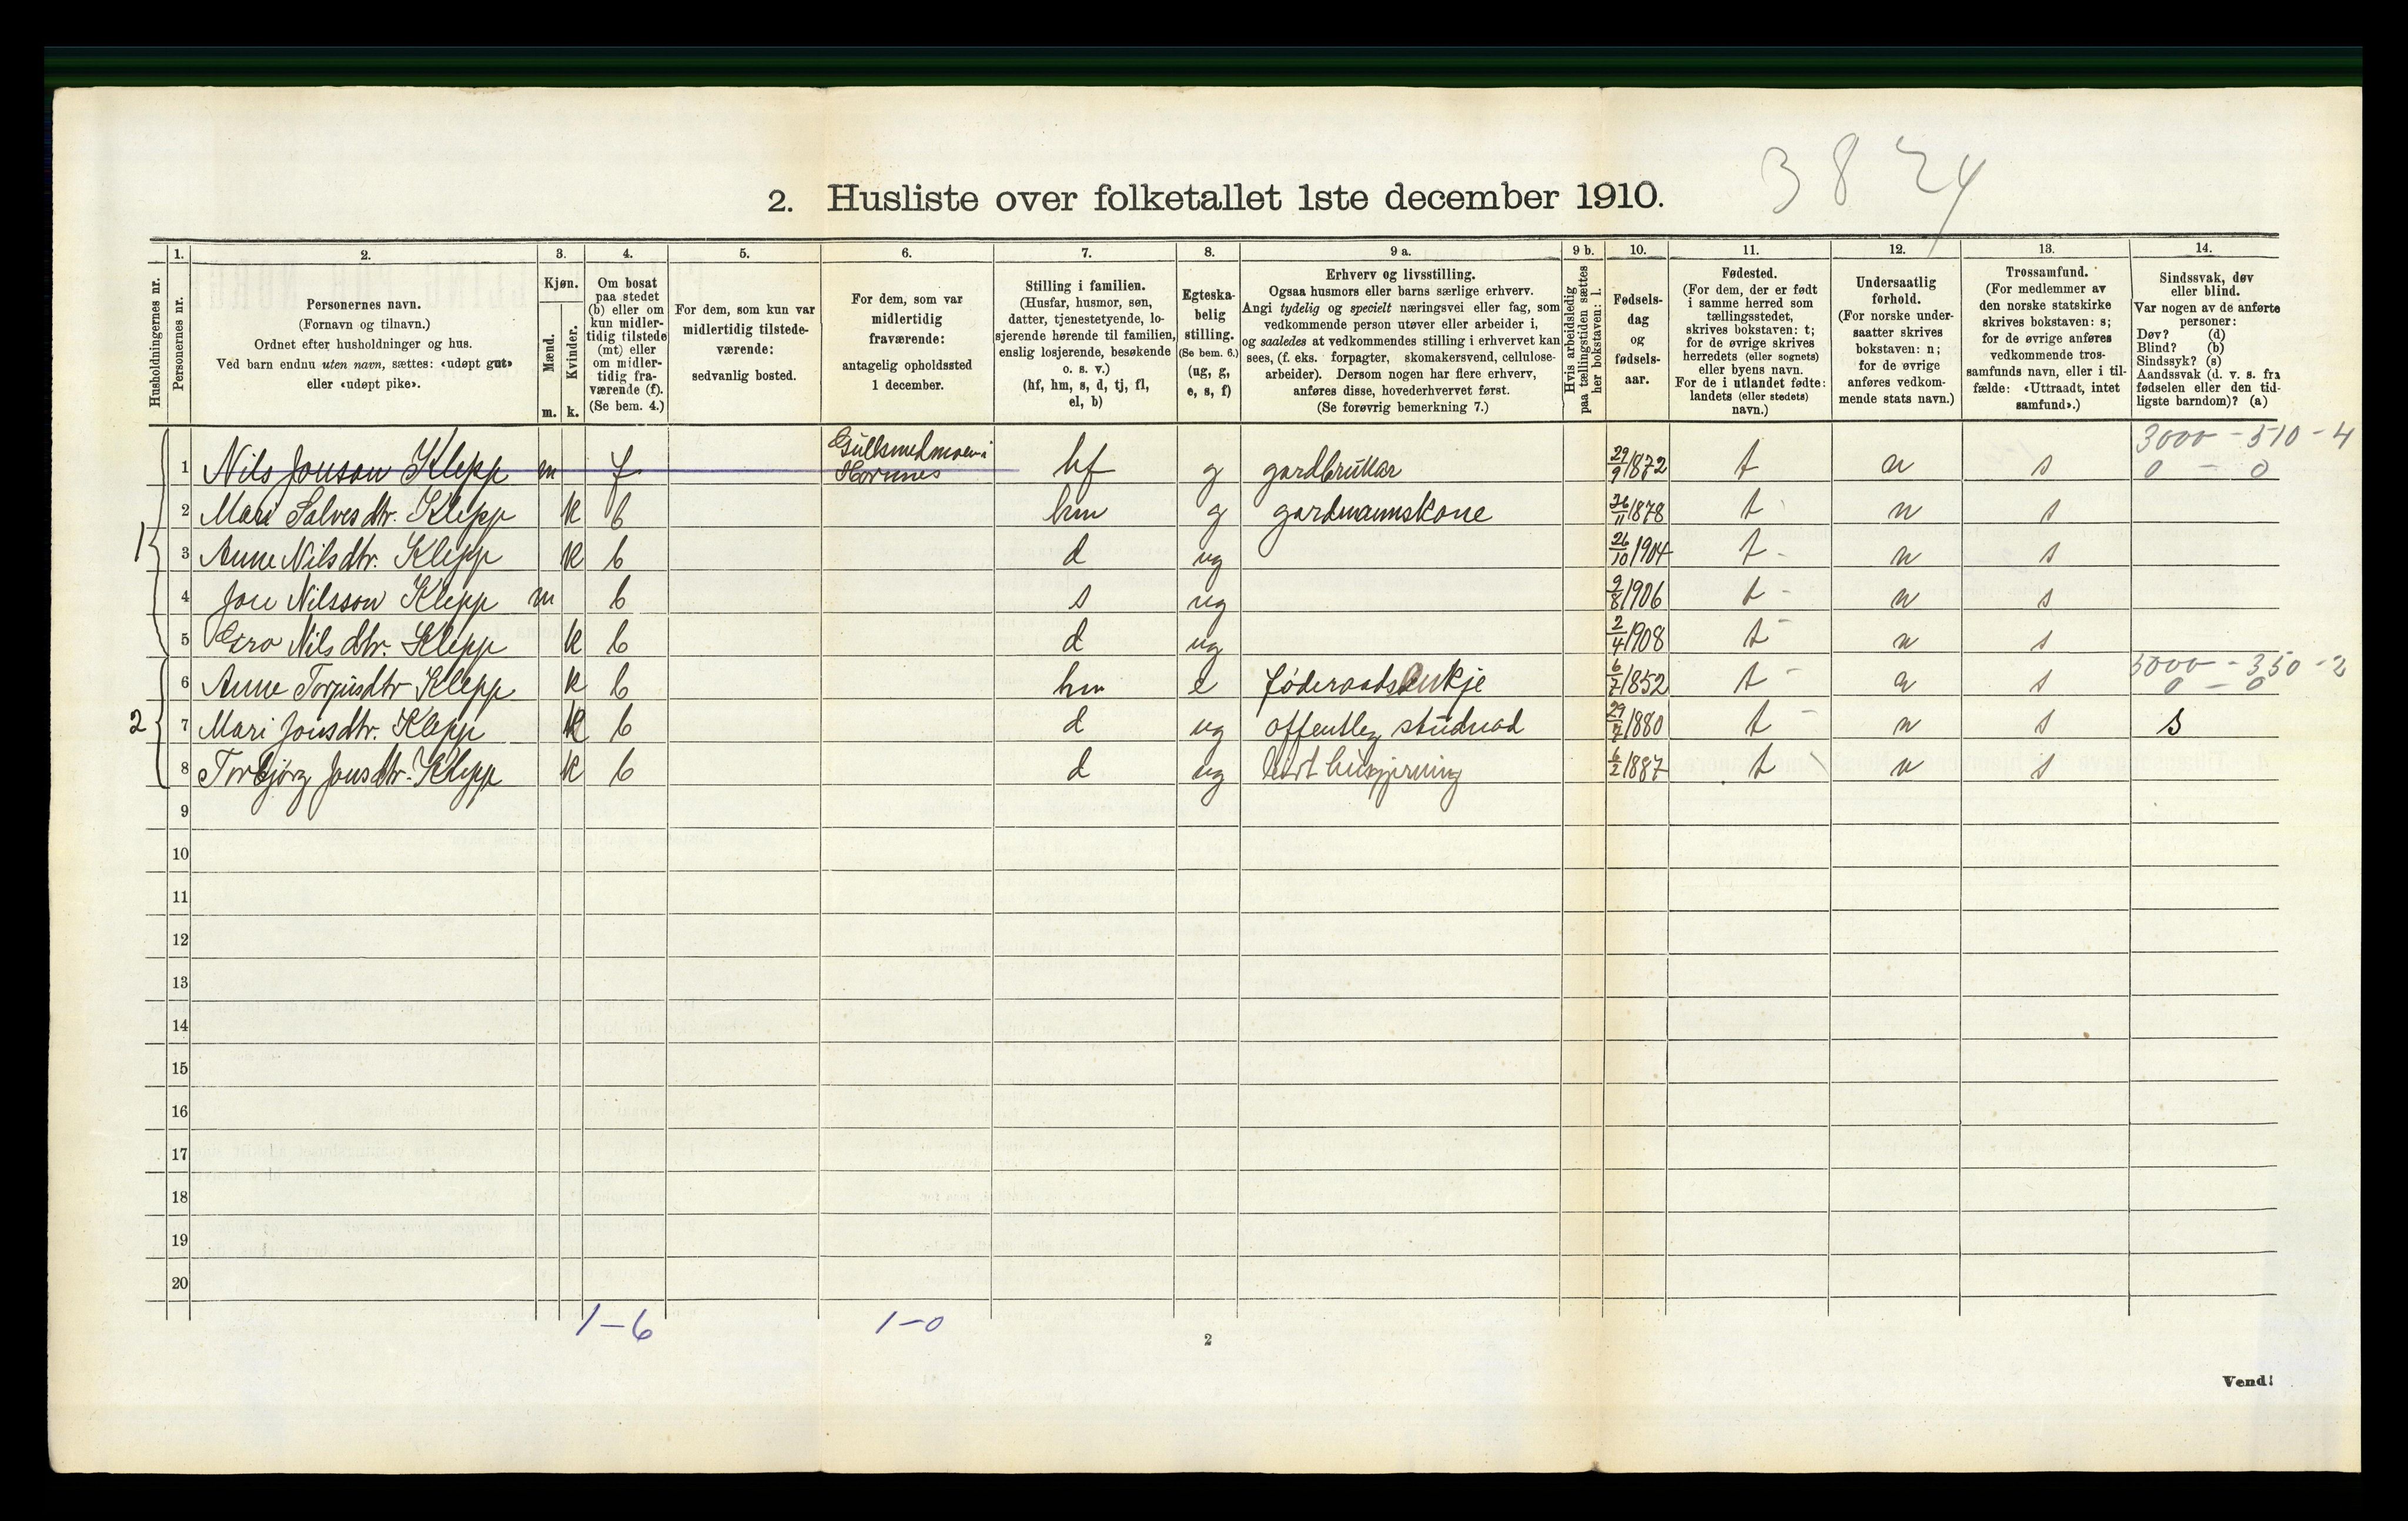 3824
2. Husliste over folketallet 1ste december 1910.
Husholdningernes nr.
1.
Personernes nr.
2.
Personernes navn.
(Fornavn og tilnavn.)
Ordnet efter husholdninger og hus.
Ved barn endnu uten navn, sættes: «udøpt gut»
eller «udøpt pike».
3.
Kjøn.
Mænd.
Kvinder.
m. k.
4.
Om bosat
paa stedet
(b) eller om
kun midler-
tidig tilstede
(mt) eller
om midler-
tidig fra-
værende (f).
(Se bem. 4.)
5.
For dem, som kun var
midlertidig tilstede-
værende:
sedvanlig bosted.
6.
For dem, som var
midlertidig
fraværende:
antagelig opholdssted
1 december.
7.
Stilling i familien.
(Husfar, husmor, søn,
datter, tjenestetyende, lo-
sjerende hørende til familien,
enslig losjerende, besøkende
o. s. v.)
(hf, hm, s, d, tj, fl,
el, b)
8.
Egteska-
belig
stilling.
(Se bem. 6.)
(ug, g,
e, s, f)
9 a.
Erhverv og livsstilling.
Ogsaa husmors eller barns særlige erhverv.
Angi tydelig og specielt næringsvei eller fag, som
vedkommende person utøver eller arbeider i,
og saaledes at vedkommendes stilling i erhvervet kan
sees, (f. eks. forpagter, skomakersvend, cellulose-
arbeider). Dersom nogen har flere erhverv,
anføres disse, hovederhvervet først.
(Se forøvrig bemerkning 7.)
9 b.
Hvis arbeidsledig
paa tællingstiden sættes
her bokstaven: l.
10.
Fødsels-
dag
og
fødsels-
aar.
11.
Fødested.
(For dem, der er født
i samme herred som
tællingsstedet,
skrives bokstaven: t;
for de øvrige skrives
herredets (eller sognets)
eller byens navn.
For de i utlandet fødte:
landets (eller stedets)
navn.)
12.
Undersaatlig
forhold.
(For norske under-
saatter skrives
bokstaven: n;
for de øvrige
anføres vedkom-
mende stats navn.)
13.
Trossamfund.
(For medlemmer av
den norske statskirke
skrives bokstaven: s;
for de øvrige anføres
vedkommende tros-
samfunds navn, eller i til-
fælde: «Uttraadt, intet
samfund».)
14.
Sindssvak, døv
eller blind.
Var nogen av de anførte
personer:
Døv? (d)
Blind? (b)
Sindssyk? (s)
Aandssvak (d. v. s. fra
fødselen eller den tid-
ligste barndom)? (a)
3000 - 510 - 4
Gullsmedmoen i
1 1 Nils Jonson Klepp m f Hornnes hf g gardbrukar 29/9 1872 t n s 0 - 0
2 Mari Salvesdtr. Klepp k b hm g gardmannskone 26/11 1878 t n s
3 Anne Nilsdtr. Klepp k b d ug 26/10 1904 t - n s
4 Jon Nilsson Klepp m b s ug 9/8 1906 t - n s
5 Gro Nilsdtr. Klepp k b d ug 2/4 1908 t - n s
5000 - 350 - 2
2 6 Anne Torjusdtr Klepp k b hm e føderaadsenkje 6/7 1852 t - n s 0 - 0
7 Mari Jonsdtr. Klepp k b d ug offentleg studnad 29/7 1880 t - n s s
8 Torbjørg Jonsdtr. Klepp k b d ug husgjerning 6/2 1887 t n s
9
10
11
12
13
14
15
16
17
18
19
20
1 - 6 1 - 0
2
Vend!